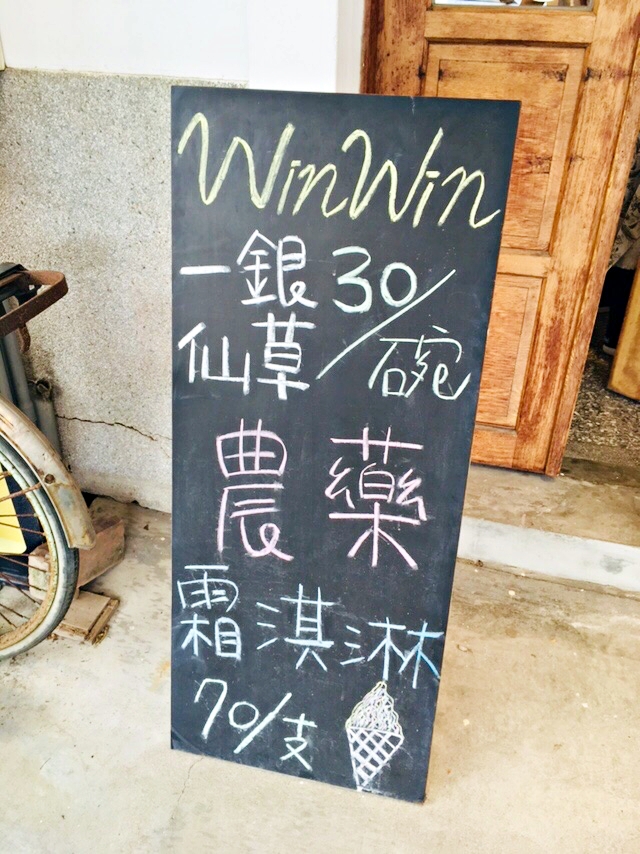 WinWin
一銀仙草 30/碗
農藥
霜淇淋
70/支